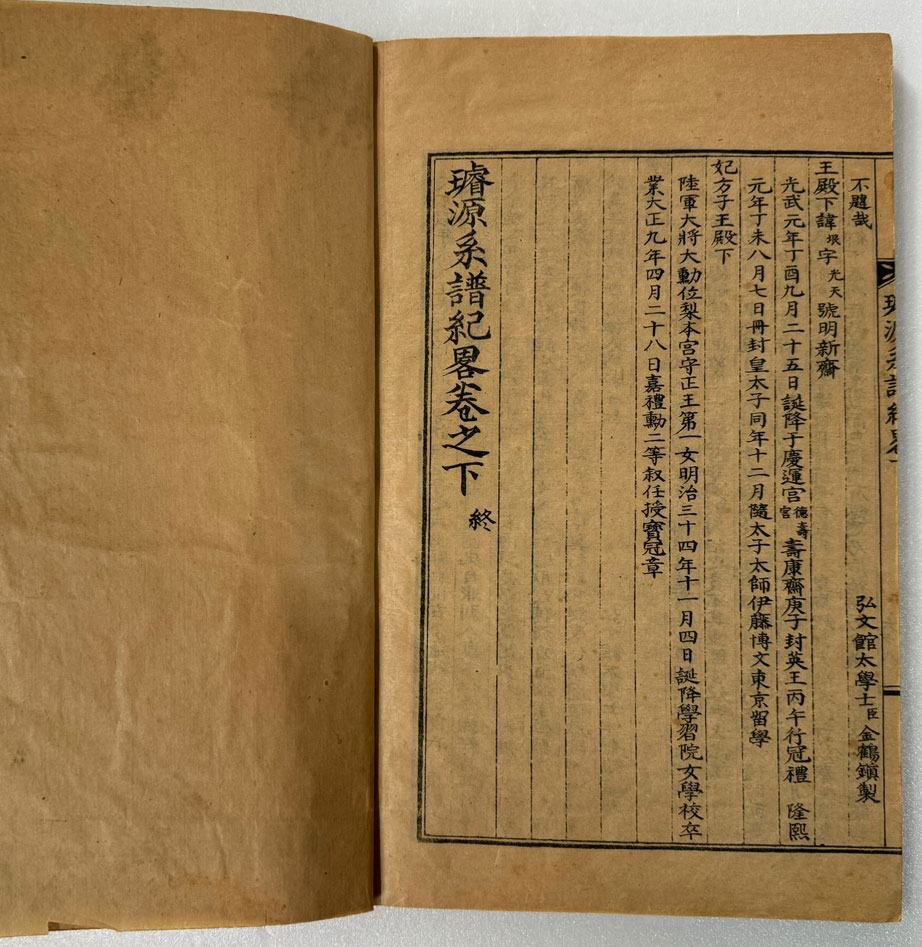 不韙哉 弘文館太學士臣金鶴鎭製
王殿下諱垠字光天號明新齋
光武元年丁酉九月二十五日誕降于慶運宮德壽宮壽康齋庚子封英王丙午行冠禮 隆熙
元年丁未八月七日冊封皇太子同年十二月隨太子太師伊藤博文東京留學
妃方子王殿下
陸軍大將大勳位梨本宮守正王第一女明治三十四年十一月四日誕降學習院女學校卒
業大正九年四月二十八日嘉禮勳二等叙任授寶冠章
璿源系譜紀畧卷之下 終